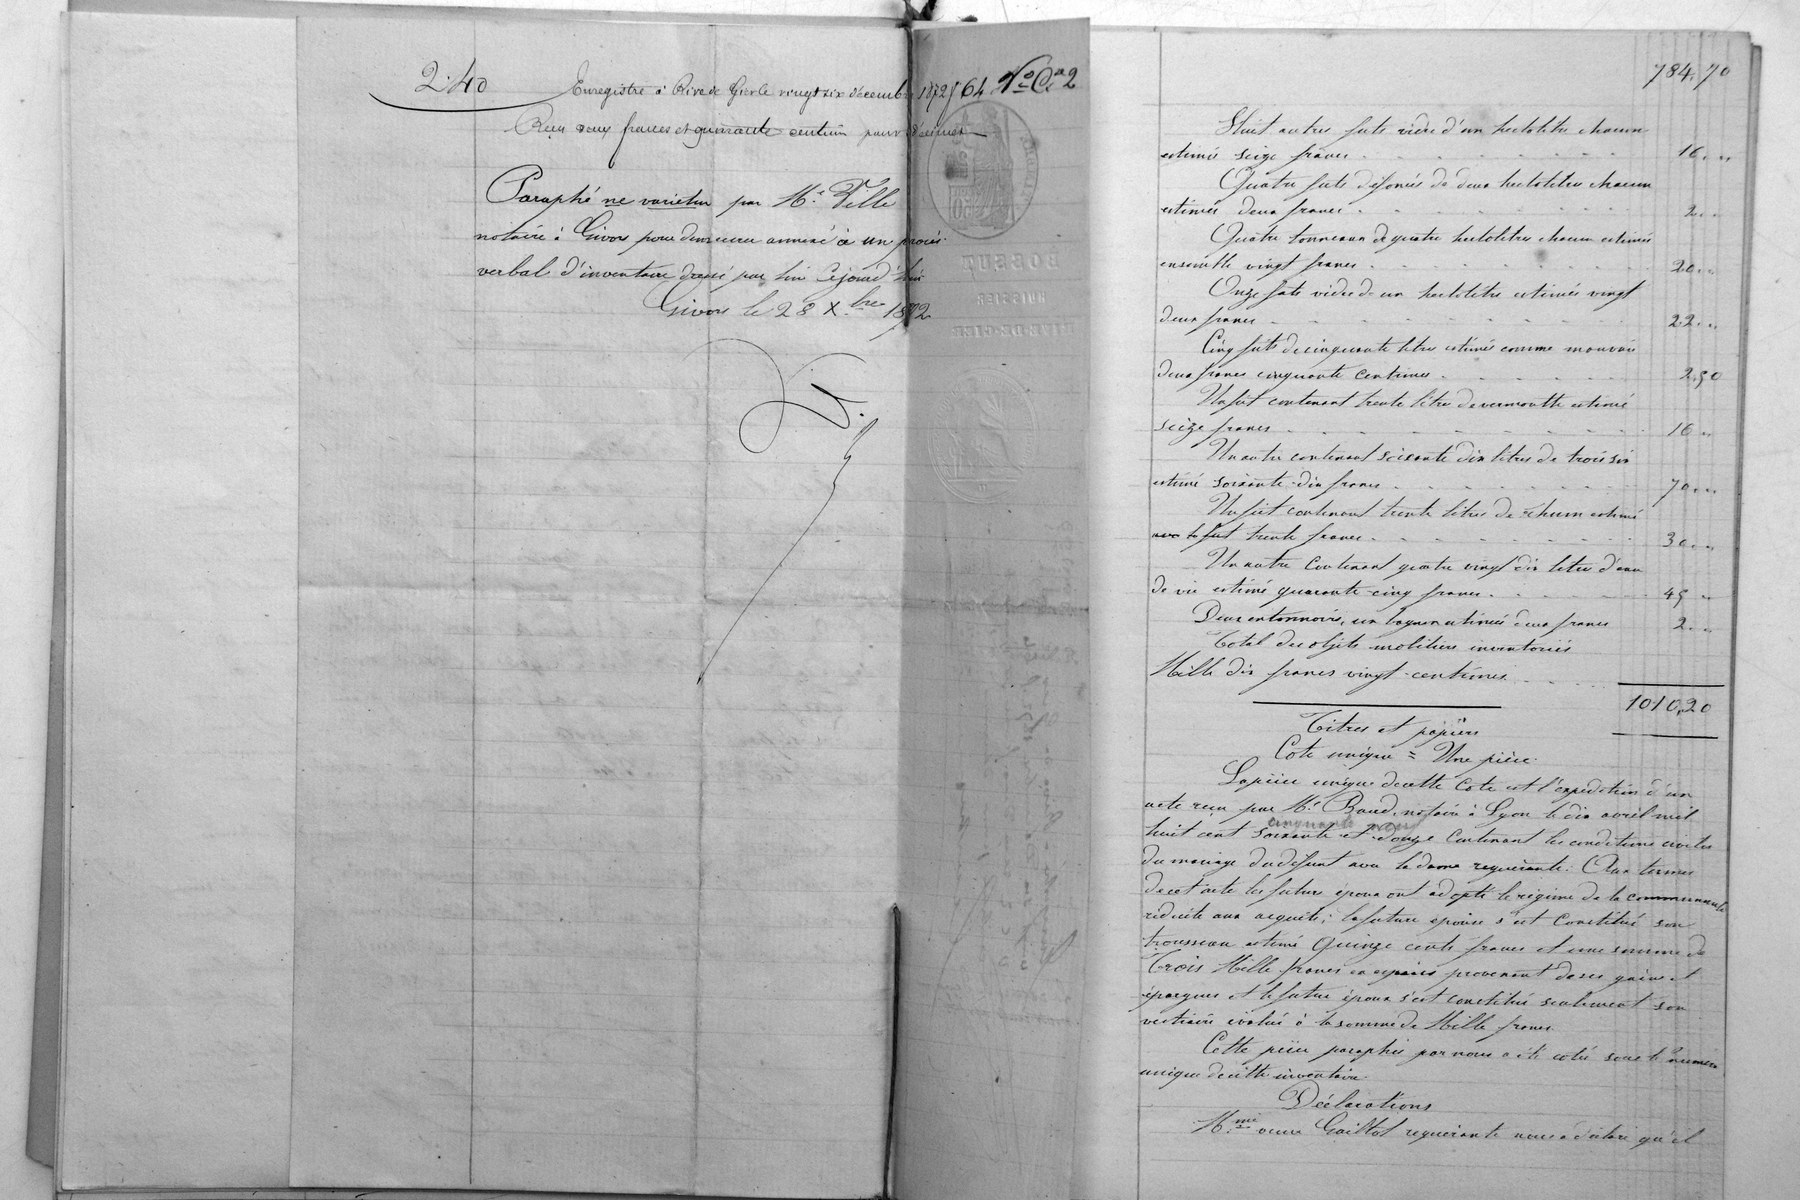 2.40
Enregistré à Rive de Gier le vingt six décembre 1872 f 64 V° C. 2
Reçu deux francs et quarante centimes pour décimes
Paraphé ne varietur par Me Ville
notaire à Givors pour demeurer annexé à un procès
verbal d'inventaire dressé par lui cejourd'hui
Givors le 28 Xbre 1872
V.
BOSSUT
HUISSIER
RIVE-DE-GIER
784,70
Huit autres futs vides d'un hectolitre chacun
estimés seize francs 16 "
Quatre futs défoncés de deux hectolitres chacun
estimés deux francs 2 "
Quatre tonneaux de quatre hectolitres chacun estimés
ensemble vingt francs 20 "
Onze futs vides de un hectolitre estimés vingt
deux francs 22 "
Cinq futs de cinquante litres estimés comme mauvais
deux francs cinquante centimes 2,50
Un fût contenant trente litres de vermouth estimé
seize francs 16 "
Un autre contenant soixante dix litres de trois six
estimé soixante-dix francs 70 "
Un fût contenant trente litres de rhum estimé
avec le fut trente francs 30 "
Un autre contenant quatre vingt dix litres d'eau
de vie estimé quarante-cinq francs 45 "
Deux entonnoirs, un bagnon estimés deux francs 2 "
Total des objets mobiliers inventoriés
Mille dix francs vingt centimes
1010,20
Titres et papiers
Cote unique = Une pièce.
La pièce unique de cette cote est l'expédition d'un
acte reçu par Me Baud, notaire à Lyon le dix avril mil
cinquante neuf
huit cent soixante et douze contenant les conditions civiles
du mariage du défunt avec la dame requérante. Aux termes
de cet acte les futurs époux ont adopté le régime de la communauté
réduite aux acquêts; la future épouse s'est constitué son
trousseau estimé quinze cents francs et une somme de
Trois Mille francs en espèces provenant de ses gains et
épargnes et le futur époux s'est constitué seulement son
vestiaire évalué à la somme de Mille francs.
Cette pièce paraphée par nous a été cotée sous le numéro
unique de cette inventaire.
Déclarations
Mme veuve Gaillot requérante nous a déclaré qu'il